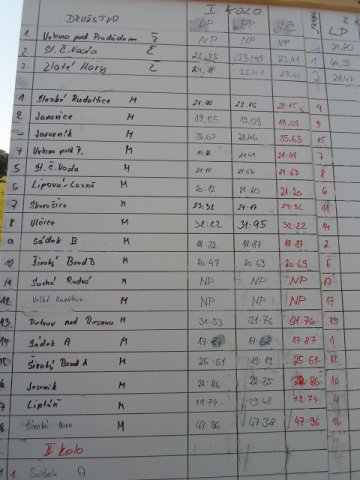 DRUŽSTVO I. KOLO
LP PP V.Č. LP
1. Vrbno pod Pradědem Ž NP NP NP
2. St. Č. Voda Ž 22,23 23,41 23,41 1
3. Zlaté Hory Ž 24,18 25,41 25,41 2 28,47
1 Slezké Rudoltice M 21:90 22.15 22.15 9
2 Janovice M 19,05 19,09 19,09 3
3 Javorník M 35.63 21.46 35.63 15
4 Vrbno pod P. M 21.49 21.49 7
5 St. Č. Voda M 21.63 8
6 Lipová-Lázně M 20.12 21.20 21.20 6
7 Skorošice M 23:32 23:32 11
8 Vlčice M 32:22 31:95 32:22 14
9 Sádek B M 18.32 18.87 18.87 2
10 Široký Brod B M 20.47 20.69 20.69 5
11 Suchá Rudná M NP NP NP 17
12 M NP NP NP 17
13. Petrov nad Desnou M 31:53 31.76 31.76 13
14 Sádek A M 17.87 1
15 Široký Brod A M 26.61 19.19 26.61 12
6 Jeseník M 22.86 22.35 22.86 10
7 Liptáň M 19.74 19.48 19.74 4
8 Široká Niva M 47.96 47.38 47.96 16
II kolo
1. Sádek A